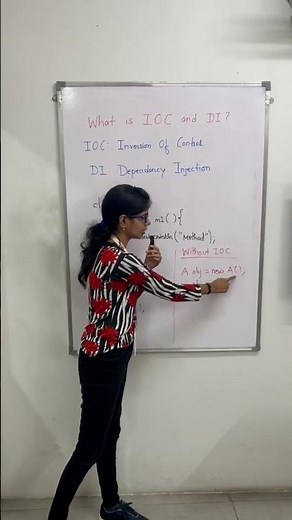 What is IOC and DI?
IOC: Inversion Of Control
DI: Dependancy Injection
cl
m1(){
("Method");
Without IOC
A obj = new A();